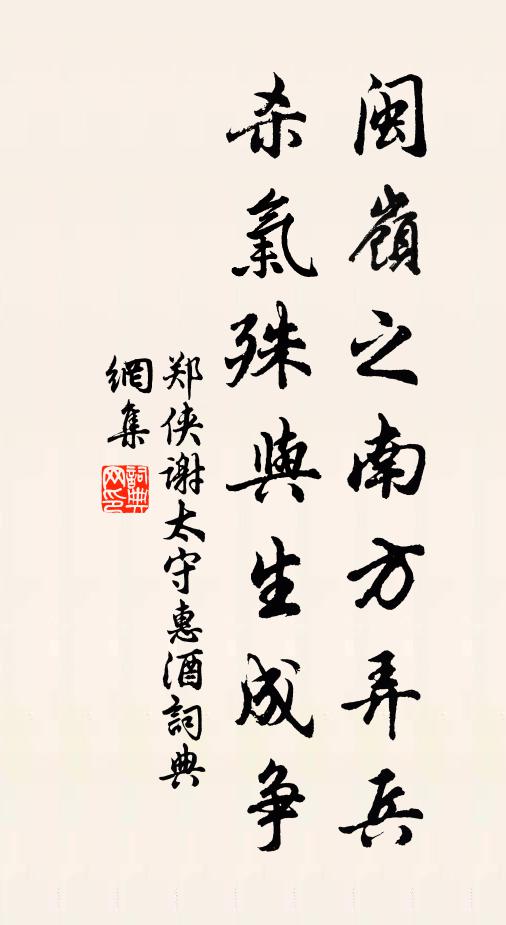 闽嶺之南方弄兵
杀氣殊與生成争
郑侠谢太守惠酒詞典
網集
詞典
网印